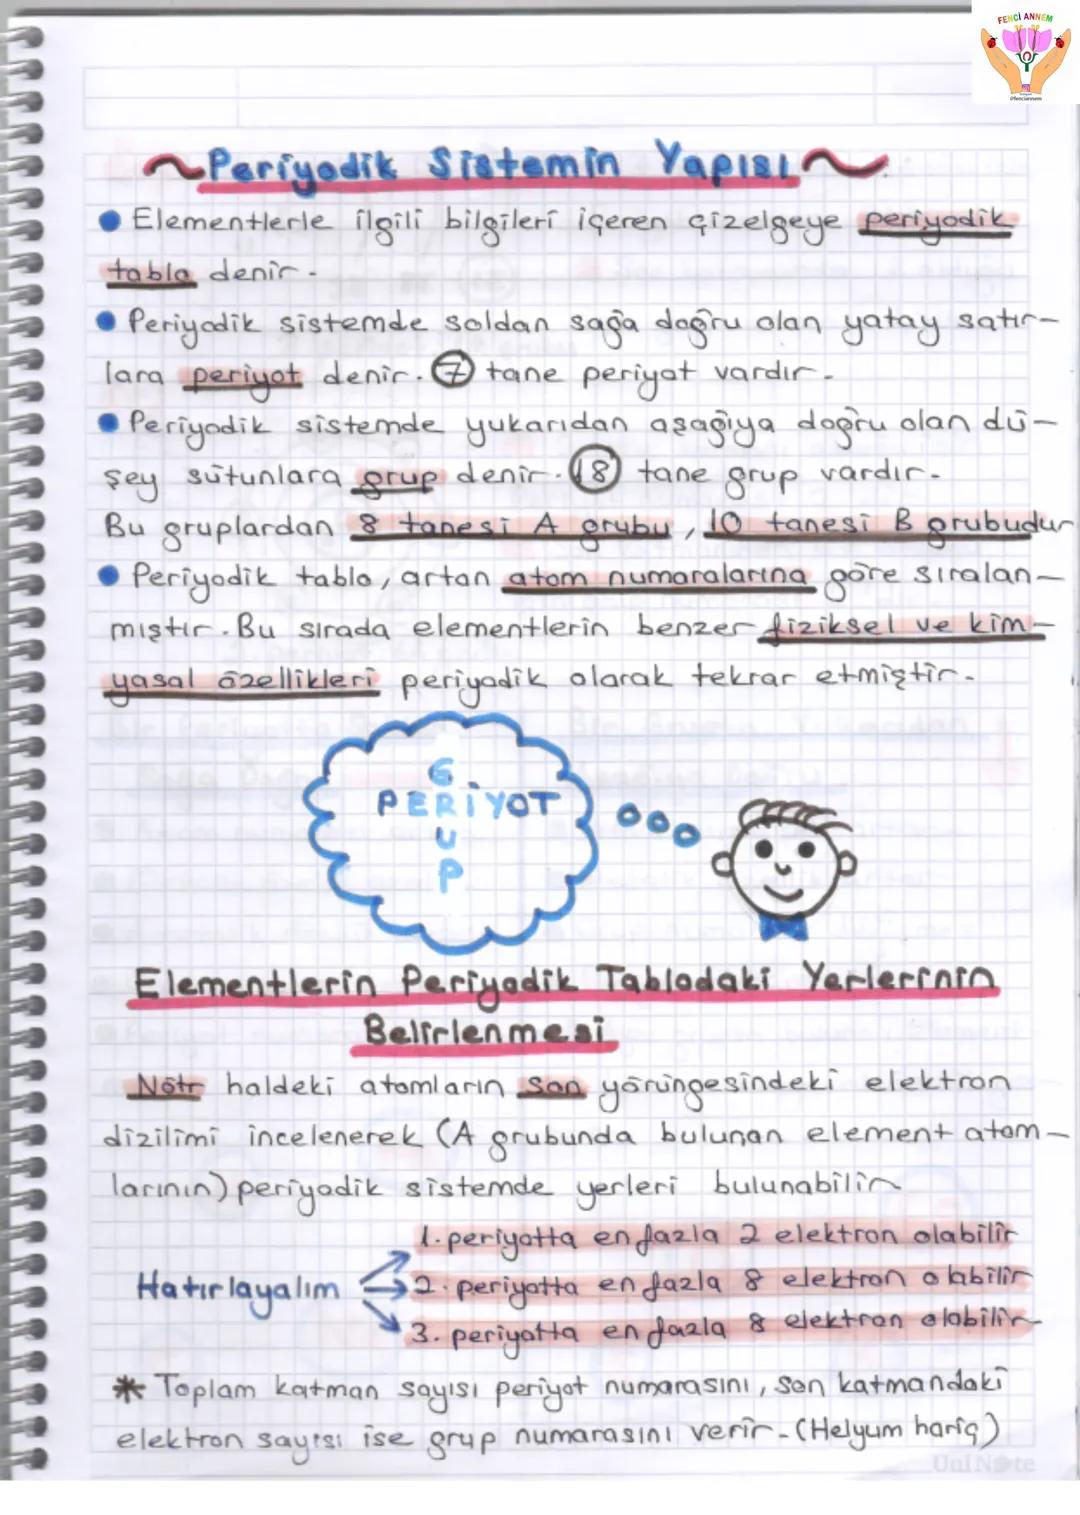 FENCİ ANNEM
@fenciannem
~Periyodik Sistemin Yapısı~
• Elementlerle ilgili bilgileri içeren çizelgeye periyodik
tablo denir.
• Periyodik sistemde soldan sağa doğru olan yatay satır-
lara periyot denir. 7 tane periyot vardır.
• Periyodik sistemde yukarıdan aşağıya doğru olan dü-
şey sütunlara grup denir. 18 tane grup vardır.
Bu gruplardan 8 tanesi A grubu, 10 tanesi B grubudur
• Periyodik tablo, artan atom numaralarına göre sıralan-
mıştır. Bu sırada elementlerin benzer fiziksel ve kim-
yasal özellikleri periyodik olarak tekrar etmiştir.
G
PERİYOT
U
P
Elementlerin Periyodik Tablodaki Yerlerinin
Belirlenmesi
Nötr haldeki atomların son yörüngesindeki elektron
dizilimi incelenerek (A grubunda bulunan element atom-
larının) periyodik sistemde yerleri bulunabilir
1. periyotta en fazla 2 elektron olabilir
Hatırlayalım 2. periyotta en fazla 8 elektron olabilir
3. periyotta en fazla 8 elektron olabilir
* Toplam katman sayısı periyot numarasını, son katmandaki
elektron sayısı ise grup numarasını verir. (Helyum hariç)
UniNote